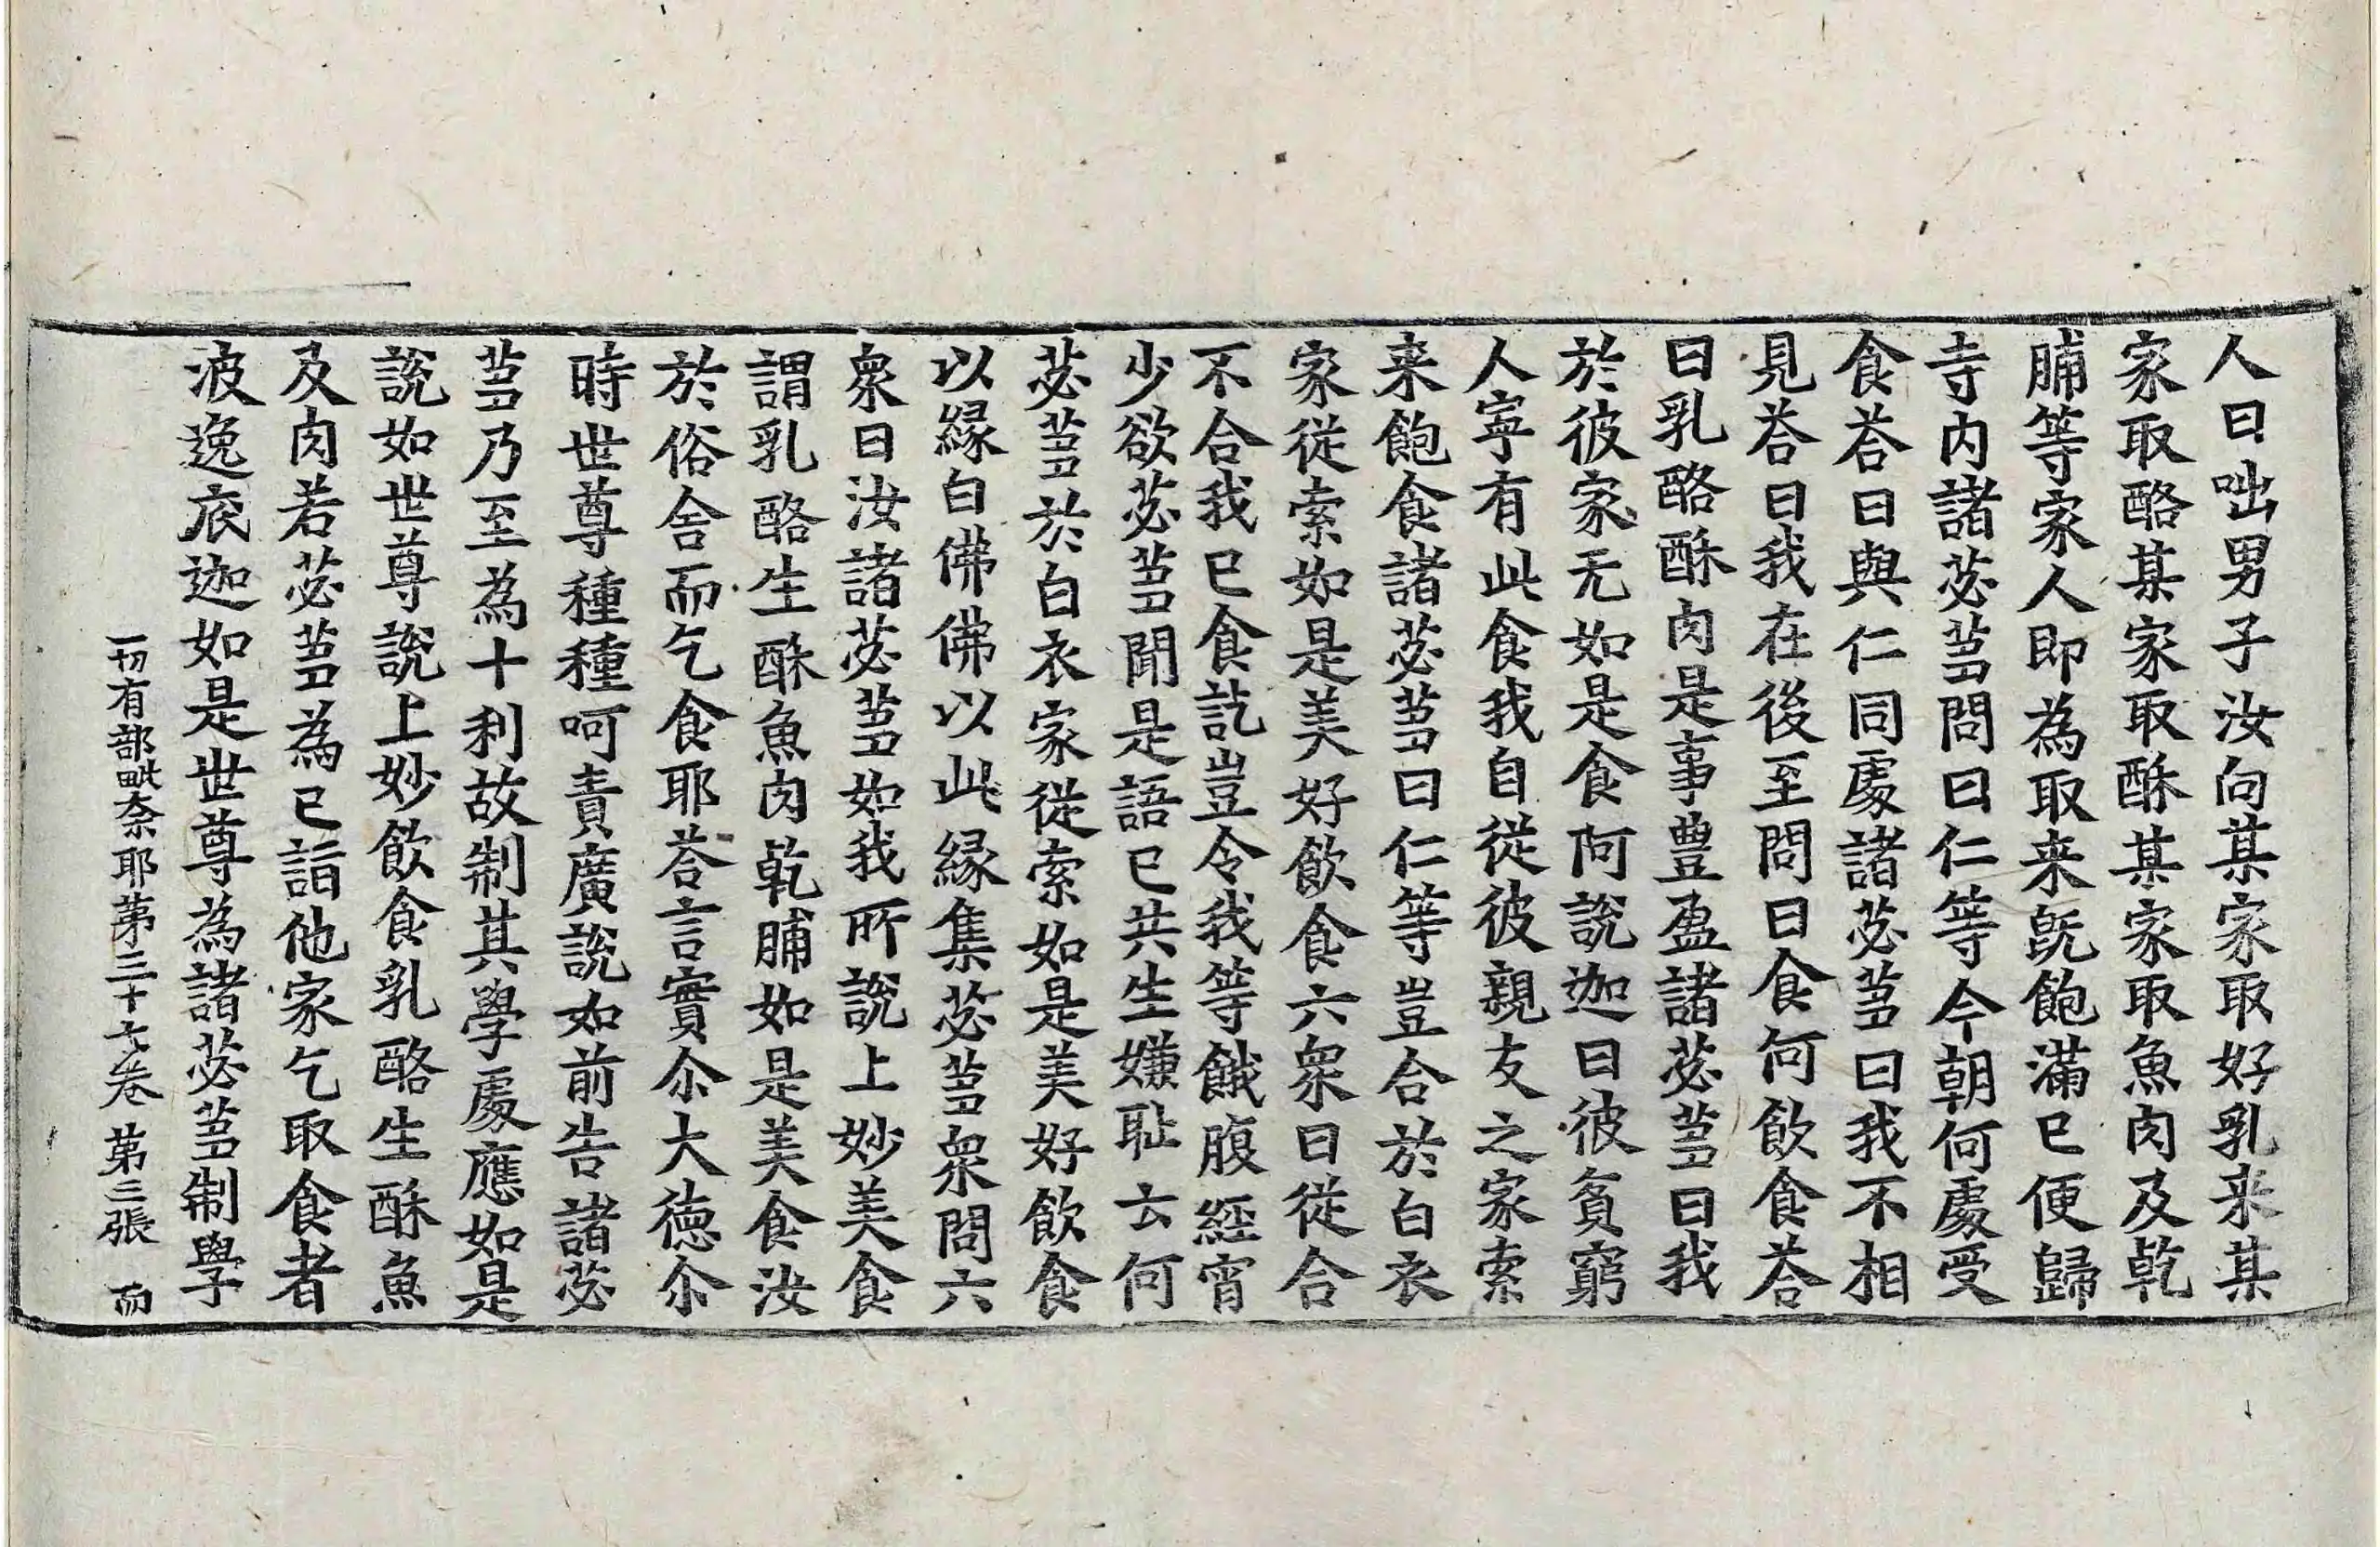 人曰咄男子汝向某家取好乳来某
家取酪某家取酥某家取魚肉及乾
脯等家人即為取来旣飽滿已便歸
寺內諸苾芻問曰仁等今朝何處受
食荅曰與仁同處諸苾芻曰我不相
見荅曰我在後至問曰食何飲食荅
曰乳酪酥肉是事豊盈諸苾芻曰我
於彼家无如是食阿說迦曰彼貧窮
人寜有此食我自從彼親友之家索
来飽食諸苾芻曰仁等豈合於白衣
家從索如是美好飲食六衆曰從合
不合我已食訖豈令我等餓腹經宵
少欲苾芻聞是語已共生嫌耻云何
苾芻於白衣家從索如是美好飲食
以緣白佛佛以此緣集苾芻衆問六
衆曰汝諸苾芻如我所說上妙美食
謂乳酪生酥魚肉乾脯如是美食汝
於俗舍而乞食耶荅言實尒大德尒
時世尊種種呵責廣說如前告諸苾
芻乃至為十利故制其學處應如是
說如世尊說上妙飲食乳酪生酥魚
及肉若苾芻為已詣他家乞取食者
波逸底迦如是世尊為諸苾芻制學
一切有部毗奈耶第三十七卷 第三張 而